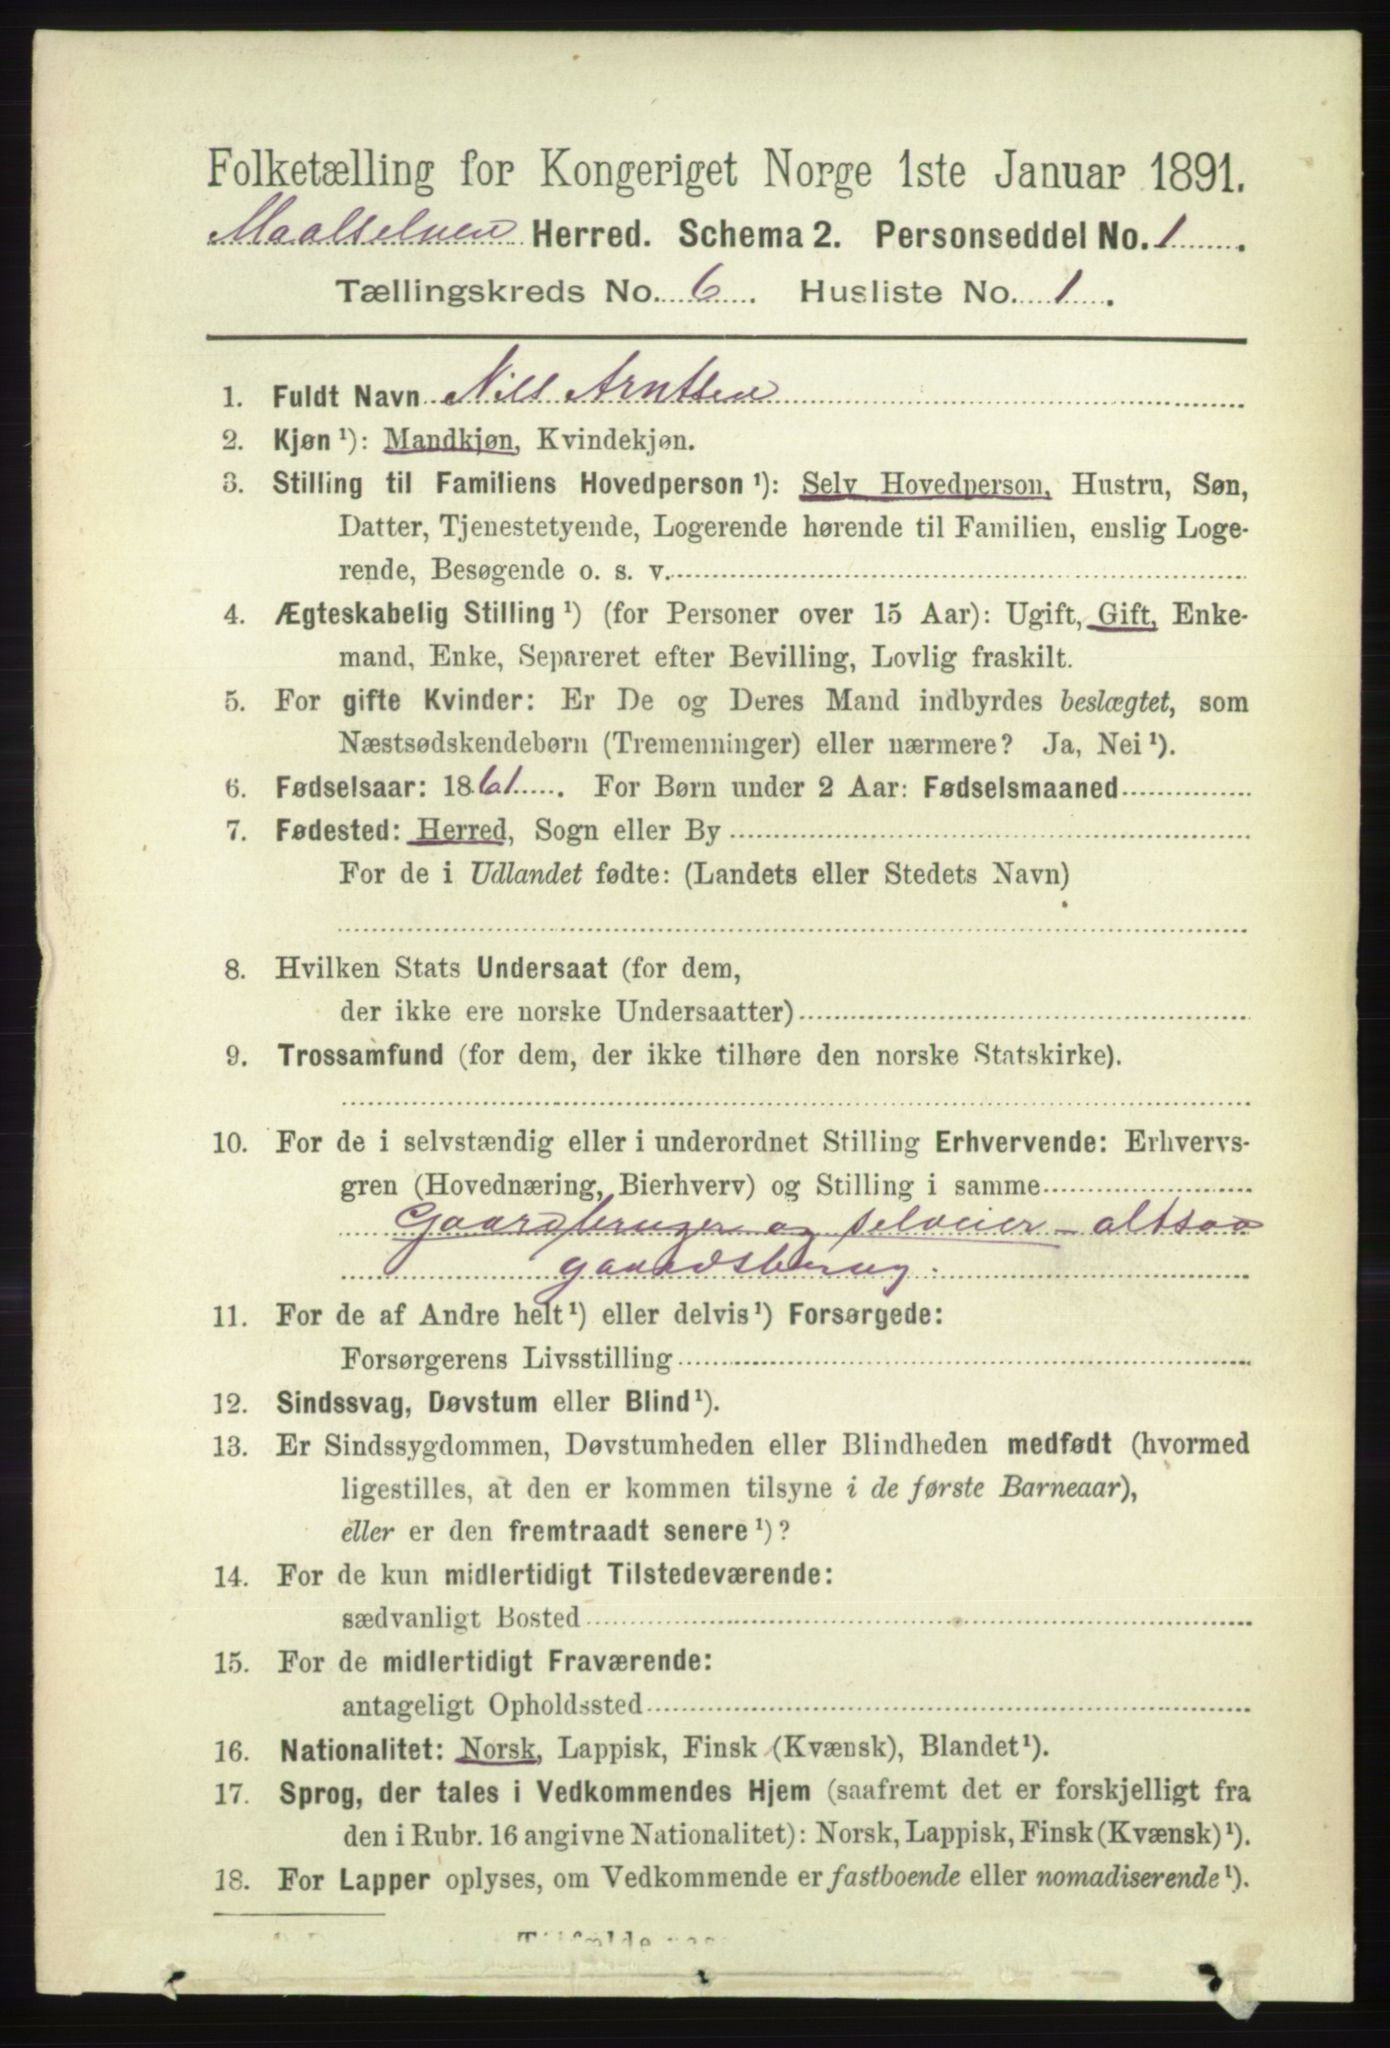 Folketælling for Kongeriget Norge 1ste Januar 1891.
Maalselven Herred. Schema 2. Personseddel No. 1.
Tællingskreds No. 6. Husliste No. 1.
1. Fuldt Navn Nils Arntsen
2. Kjøn¹): Mandkjøn, Kvindekjøn.
3. Stilling til Familiens Hovedperson¹): Selv Hovedperson, Hustru, Søn,
Datter, Tjenestetyende, Logerende hørende til Familien, enslig Loge-
rende, Besøgende o. s. v.
4. Ægteskabelig Stilling¹) (for Personer over 15 Aar): Ugift, Gift, Enke-
mand, Enke, Separeret efter Bevilling, Lovlig fraskilt.
5. For gifte Kvinder: Er De og Deres Mand indbyrdes beslægtet, som
Næstsødskendebørn (Tremenninger) eller nærmere? Ja, Nei¹).
6. Fødselsaar: 1861. For Børn under 2 Aar: Fødselsmaaned
7. Fødested: Herred, Sogn eller By
For de i Udlandet fødte: (Landets eller Stedets Navn)
8. Hvilken Stats Undersaat (for dem,
der ikke ere norske Undersaatter)
9. Trossamfund (for dem, der ikke tilhøre den norske Statskirke).
10. For de i selvstændig eller i underordnet Stilling Erhvervende: Erhvervs-
gren (Hovednæring, Bierhverv) og Stilling i samme
Gaardbruger og selveier - altsaa
gaardsbrug.
11. For de af Andre helt¹) eller delvis¹) Forsørgede:
Forsørgerens Livsstilling
12. Sindssvag, Døvstum eller Blind¹).
13. Er Sindssygdommen, Døvstumheden eller Blindheden medfødt (hvormed
ligestilles, at den er kommen tilsyne i de første Barneaar),
eller er den fremtraadt senere¹)?
14. For de kun midlertidigt Tilstedeværende:
sædvanligt Bosted
15. For de midlertidigt Fraværende:
antageligt Opholdssted
16. Nationalitet: Norsk, Lappisk, Finsk (Kvænsk), Blandet¹).
17. Sprog, der tales i Vedkommendes Hjem (saafremt det er forskjelligt fra
den i Rubr. 16 angivne Nationalitet): Norsk, Lappisk, Finsk (Kvænsk)¹).
18. For Lapper oplyses, om Vedkommende er fastboende eller nomadiserende¹).